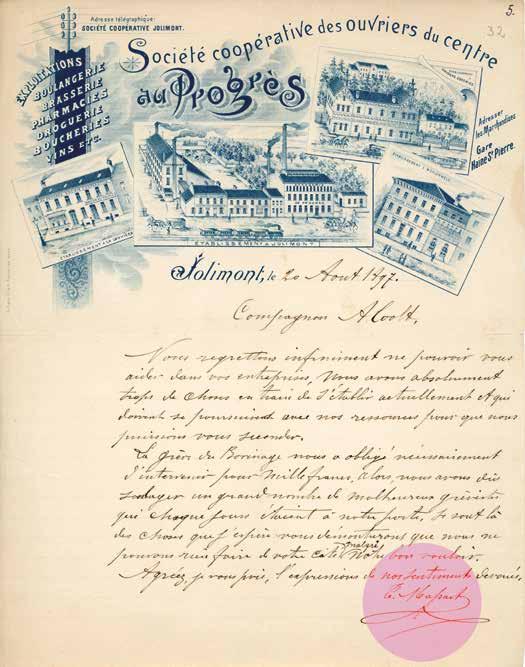 5.
32
Adresse télégraphique:
SOCIÉTÉ COOPÉRATIVE JOLIMONT.
Société coopérative des ouvriers du centre
au Progrès
EXPLOITATIONS
BOULANGERIE
BRASSERIE
PHARMACIES
DROGUERIE
BOUCHERIES
VINS ETC.
Adresser
les Marchandises
Gare
Haine St Pierre.
ETABLISSEMENT A JOLIMONT
Jolimont, le 20 Aout 1897.
Compagnon
Nous regrettons infiniment ne pouvoir vous
aider dans vos entreprises, nous avons absolument
trops de choses en train de s'établir actuellement et qui
doivent se poursuivre avec nos ressources pour que nous
puissions vous seconder.
La grève du Borinage nous a obligé nécessairement
d'intervenir pour mille francs, alors, nous avons dû
soulager un grand nombre de malheureux grévistes
qui chaque jours étaient à notre porte, ce sont là
des choses que j'espère vous démontreront que nous ne
pouvons rien faire de votre côté malgré notre bon vouloir.
Agréez je vous prie, l'expressions de nos sentiments dévoués,